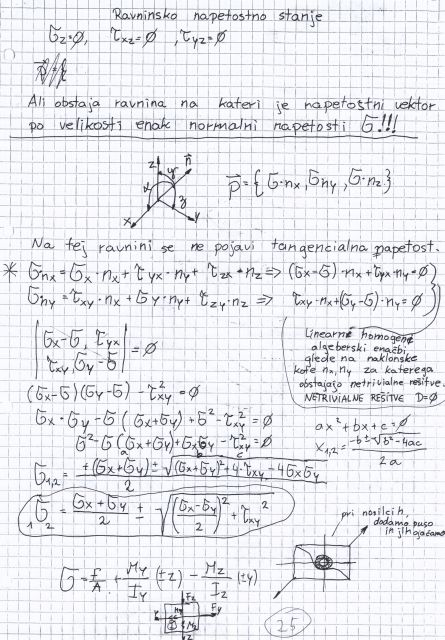 Ravninsko napetostno stanje
σz=∅, τxz=∅, τyz=∅
Ali obstaja ravnina na kateri je napetostni vektor
po velikosti enak normalni napetosti σ!!!
z
n
x
y
p = {σ·nx, σny, σ·nz}
Na tej ravnini se ne pojavi tangencialna napetost.
* σnx = σx·nx + τyx·ny + τzx·nz => (σx-σ)·nx+τyx·ny=∅
σny = τxy·nx + σy·ny + τzy·nz => τxy·nx+(σy-σ)·ny=∅
|σx-σ, τyx|
|τxy, σy-σ| = ∅
Linearne homogene
algeberski enačbi
glede na naklonske
kote nx, ny za katerega
obstajajo netrivialne rešitve.
NETRIVIALNE REŠITVE D=∅
(σx-σ)(σy-σ) - τ²xy = ∅
σx·σy - σ(σx+σy) + σ² - τ²xy = ∅
σ² - σ(σx+σy) + σxσy - τ²xy = ∅
a b c
ax² + bx + c = ∅
x1,2 = (-b ± √(b²-4ac)) / 2a
σ1,2 = (+(σx+σy) ± √((σx+σy)²+4·τxy-4σxσy)) / 2
1σ2 = (σx+σy)/2 ± √(((σx-σy)/2)² + τ²xy)
pri nosilcih,
dodamo
in jih ojačamo
σ = f/A + My/Iy (±z) - Mz/Iz (±y)
Fz
My
Fy
Mz
z
25